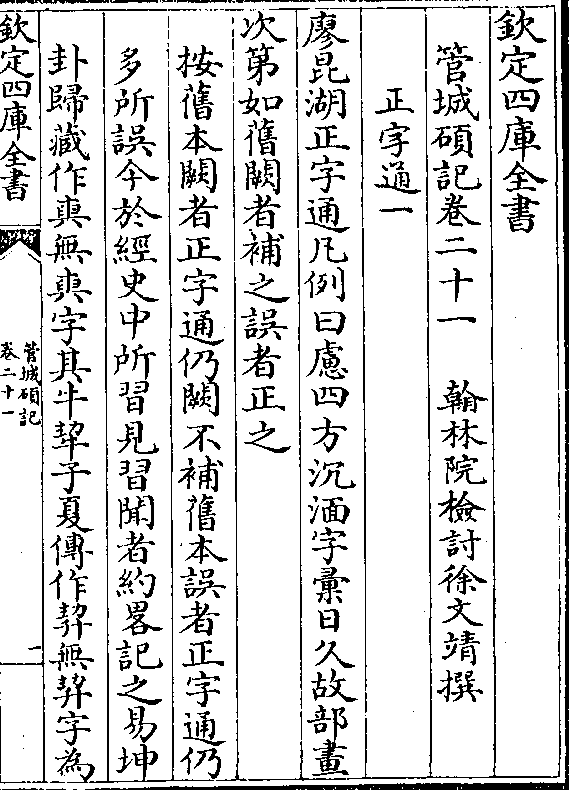 欽定四庫全書
管城碩記卷二十一　翰林院檢討徐文靖撰
正字通一
廖昆湖正字通凡例曰慮四方沉湎字彙日久故部畫
次第如舊闕者補之誤者正之
按舊本闕者正字通仍闕不補舊本誤者正字通仍
多所誤今於經史中所習見習聞者約畧記之易坤
卦歸藏作𠀬無𠀬字其牛掣子夏傳作挈無挈字為
欽定四庫全書
管城碩記
卷二十一
一